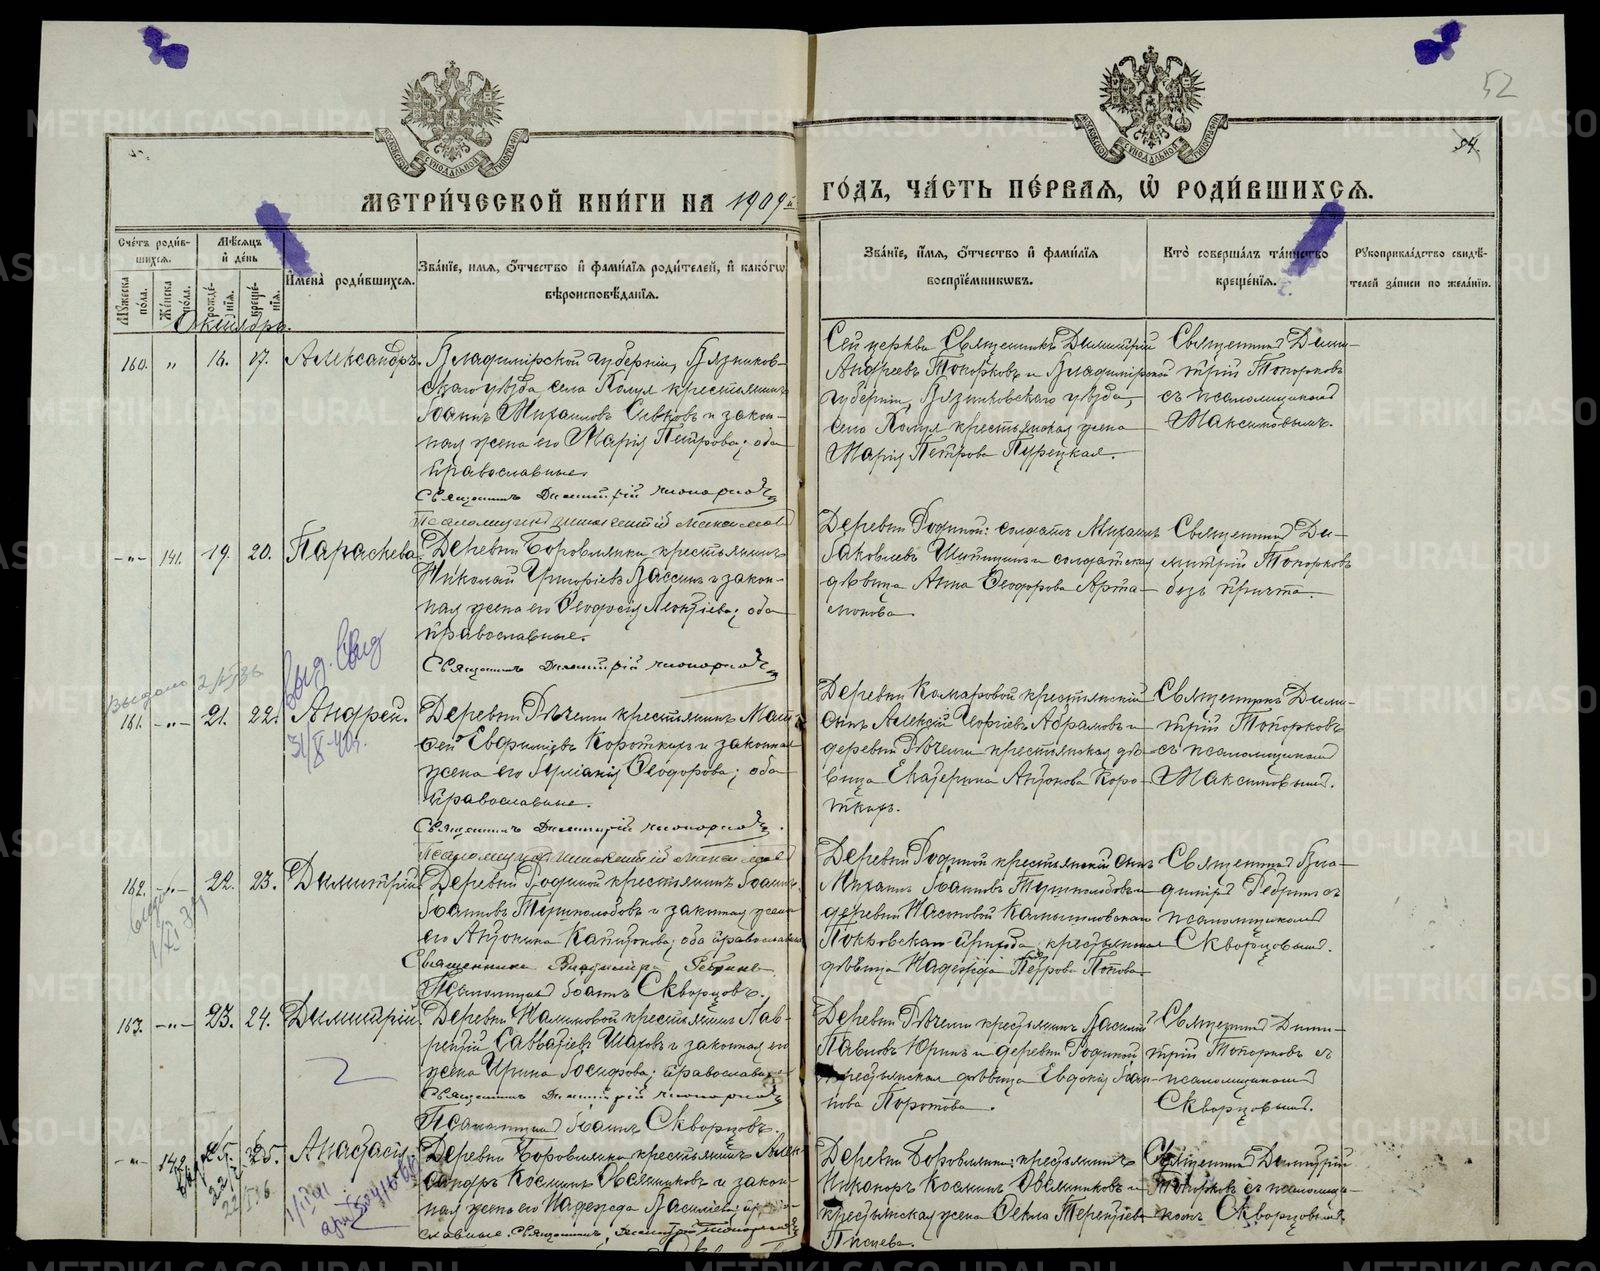 52
54.
МЕТРИЧЕСКОЙ КНИГИ НА 1909 й
ГОДЪ, ЧАСТЬ ПЕРВАЯ, Ѡ РОДИВШИХСЯ.
МОСКОВСКОЙ СѴНОДАЛЬНОЙ ТИПОГРАФІИ
МОСКОВСКОЙ СѴНОДАЛЬНОЙ ТИПОГРАФІИ
Счетъ родившихся.
Мужеска пола.
Женска пола.
Мѣсяцъ и день
рожденія.
крещенія.
Имена родившихся.
Званіе, имя, отчество и фамилія родителей, и какогѡ
вѣроисповѣданія.
Званіе, имя, отчество и фамилія
воспріемниковъ.
Кто совершалъ таинство
крещенія.
Рукоприкладство свидѣ-
телей записи по желанію.
Октября.
160. " 16. 17. Александръ.
Владимірской губерніи, Вязников-
скаго уѣзда села Холуя крестьянинъ
Іоаннъ Михаиловъ Сивковъ и закон-
ная жена его Марія Петрова; оба
православные.
Священникъ Димитрій Топорковъ
Сей церкви Священникъ Димитрій
Андреевъ Топорковъ и Владимірской
губерніи, Вязниковскаго уѣзда,
села Холуя крестьянская жена
Марія Петрова Пурецкая.
Священникъ Дими-
трій Топорковъ
съ псаломщикомъ
Максимовымъ.
-"- 141. 19. 20. Параскева.
Деревни Боровлянки крестьянинъ
Николай Григоріевъ Вассинъ и закон-
ная жена его Ѳеодосія Леонтіева; оба
православные.
Священникъ Димитрій Топорковъ
Деревни Родиной: солдатъ Михаилъ
Іаковлевъ Шипицинъ и солдатская
дѣвица Анна Ѳеодорова Арта-
монова.
Священникъ Ди-
митрій Топорковъ
безъ причта.
выдано
Выд. Свид
31/X-40г.
161. -"- 21. 22. Андрей.
Деревни Рѣчелги крестьянинъ Мат-
ѳей Евфиміевъ Короткихъ и законная
жена его Іуліанія Ѳеодорова; оба
православные.
Священникъ Димитрій Топорковъ.
Деревни Комаровой крестьянскій
сынъ Алексій Георгіевъ Абрамовъ и
деревни Рѣчелги крестьянская дѣ-
вица Екатерина Антонова Коро-
ткихъ.
Священникъ Дими-
трій Топорковъ
съ псаломщикомъ
Максимовымъ.
162. -"- 22. 23. Димитрій
Деревни Родиной крестьянинъ Іоаннъ
его Антонина Капитонова; оба православные
Священникъ Владиміръ
Псаломщикъ Іоаннъ Скворцовъ.
Деревни Родиной крестьянскій сынъ
Михаилъ Іоанновъ
деревни Насоновой Камышловскаго
Покровскаго прихода, крестьянская
дѣвица Надежда Петрова Попова.
Священникъ Вла-
псаломщикомъ
Скворцовымъ.
163. -"- 23. 24. Димитрій.
Деревни Калиновой крестьянинъ Лав-
рентій Савватіевъ Шаховъ и законная его
жена Ирина Іосифова; православные
Священникъ Димитрій Топорковъ
Псаломщикъ Іоаннъ Скворцовъ.
Деревни Рѣчелги крестьянинъ Василій
Павловъ Юринъ и деревни Родиной
крестьянская дѣвица Евдокія Іоан-
нова Поротова.
Священникъ Дими-
трій Топорковъ съ
псаломщикомъ
Скворцовымъ.
-"- 142. 25. 25. Анастасія
Деревни Боровлянки крестьянинъ Алек-
сандръ Косминъ Овсянниковъ и закон-
ная жена его Надежда Василіева; право-
славные. Священникъ Димитрій Топорковъ
Деревни Боровлянки: крестьянинъ
Никаноръ Косминъ Овсянниковъ и
крестьянская жена Ѳекла Терентіева
Священникъ Димитрій
Топорковъ съ псаломщи-
комъ Скворцовымъ.
METRIKI.GASO-URAL.RU